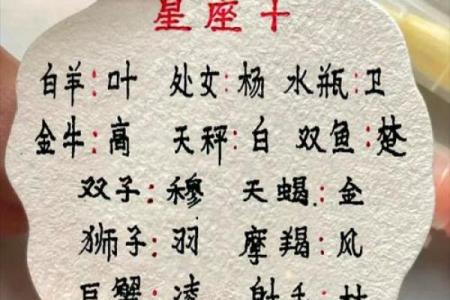 星座十
白羊:叶 处女:杨 水瓶:卫
金牛:高 天秤:白 双鱼:楚
双子:穆 天蝎:金
狮子:羽 摩羯:风
巨蟹:凌 射手:林